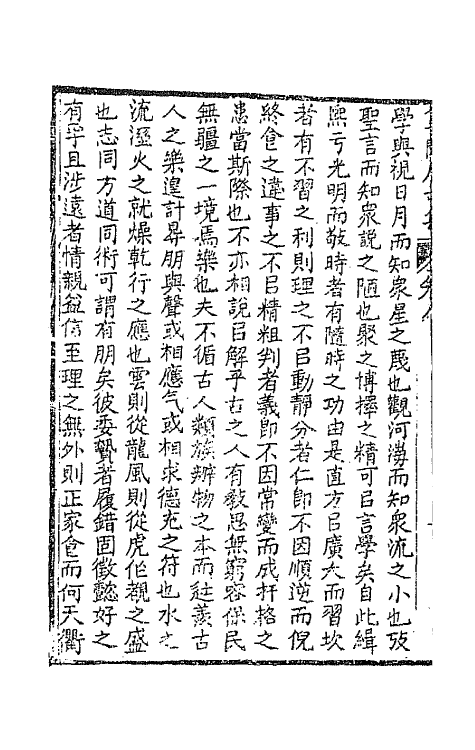 學與視日月而知衆星之蔑也觀河海而知衆流之小也攷
聖言而知衆說之陋也聚之博擇之精可㠯言學矣自此緝
熙亏光明而敬時者有隨時之功由是直方㠯廣大而習坎
者有不習之利則理之不㠯動靜分者仁即不因順逆而倪
終食之違事之不㠯精粗判者義即不因常變而成扞格之
患當斯際也不亦相說㠯解乎古之人有敎思無窮容保民
無疆之一境焉樂也夫不循古人類族辨物之本而徒羨古
人之樂遑計㫒朋與聲或相應气或相求德充之符也水之
流溼火之就燥乾行之應也雲則從龍風則從虎作親之盛
也志同方道同術可謂有朋矣彼委贄者履錯固徵懿好之
有孚且涉遠者情親益信至理之無外則正家食而何天衢